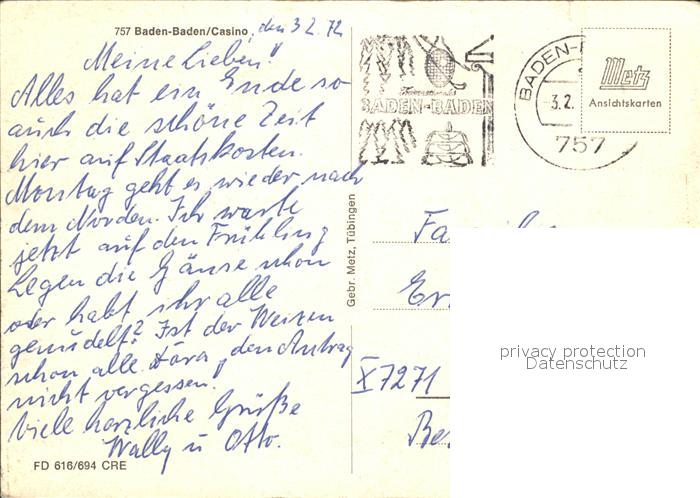 757 Baden-Baden/Casino, den 3.2.72
Meine Lieben!
Alles hat ein Ende so
auch die schöne Zeit
hier auf Staatskosten.
Montag geht es wieder nach
dem Norden. Ich warte
jetzt auf den Frühling
Legen die Gänse schon
oder habt ihr alle
genudelt? Ist der Weizen
schon alle. den Antrag
nicht vergessen!
Viele herzliche Grüße
Wally u Otto.
FD 616/694 CRE
Gebr. Metz, Tübingen
BADEN-BADEN
BADEN-
-3.2.
757
Metz
Ansichtskarten
X7271
privacy protection
Datenschutz